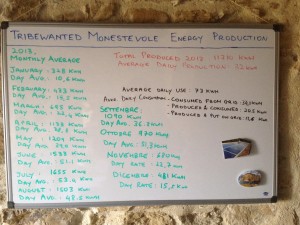 TRIBEWANTED MONESTEVOLE ENERGY PRODUCTION
2013.
MONTHLY AVERAGE
JANUARY - 328 KWH
DAY AVG. 10,6 KWH
FEBRUARY - 433 KWH
DAY AVG. 15,5 KWH
MARCH - 695 KWH
DAY AVG. 22,4 KWH
APRIL - 1133 KWH
DAY AVG.
MAY - 1304 KWH
DAY AVG.
JUNE - 1533 KWH
DAY AVG. 51,1 KWH
JULY - 1655 KWH
DAY AVG. 53,4 KWH
AUGUST - 1503 KWH
DAY AVG. 48,5 KWH
TOTAL PRODUCED 2013
AVERAGE DAILY PRODUCTION 32 KWH
AVERAGE DAILY USE - 73 KWH
AVG DAY CONSUMPTION - CONSUMED FROM GRID
- PRODUCED & CONSUMED
- PRODUCED & PUT ON GRID
SETTEMBRE
1090 KWH
DAY AVG.
OTTOBRE 970 KWH
DAY AVG. 31,3 KWH
NOVEMBRE - 680 KWH
DAY RATE - 22,7 KWH
DICEMBRE 481 KWH
DAY RATE - 15,5 KWH